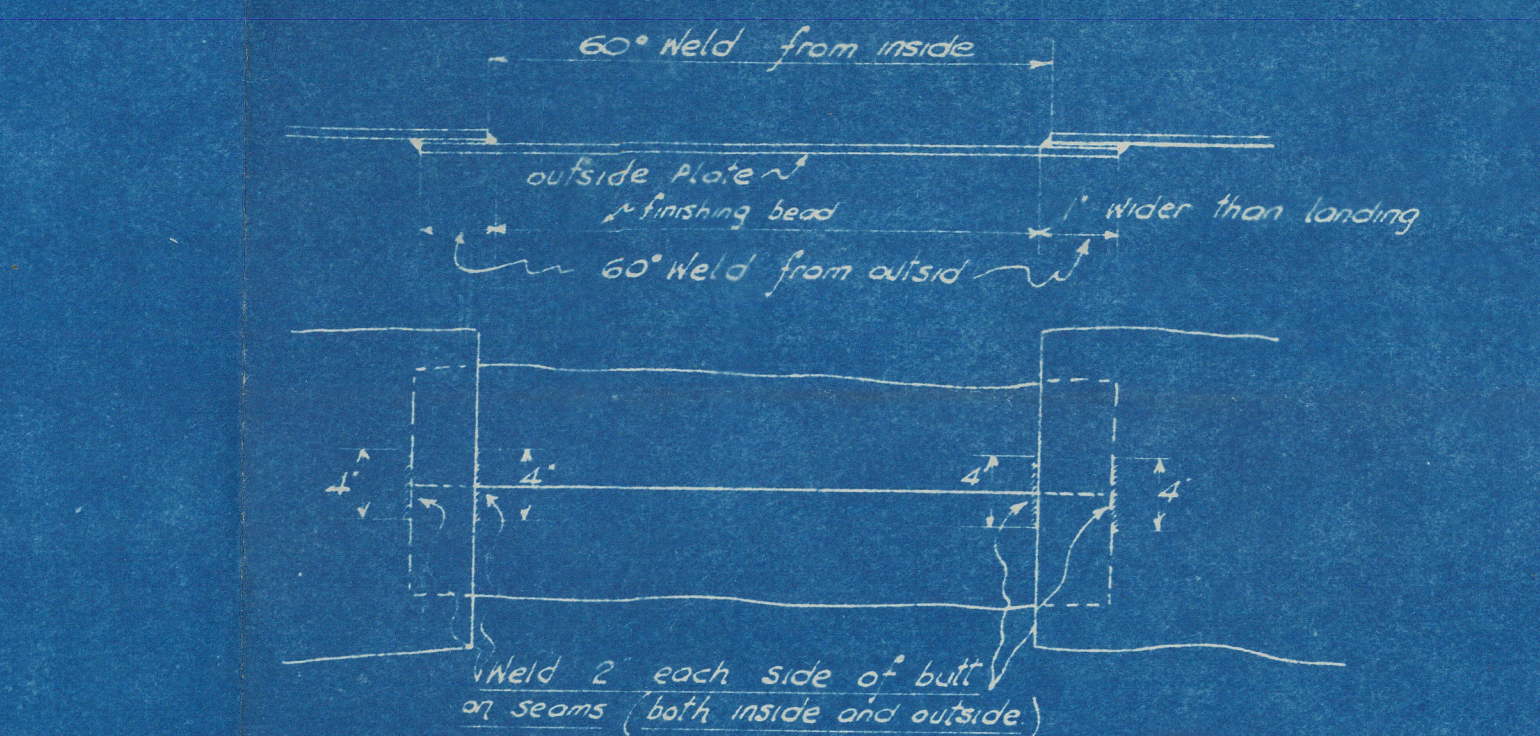 60° Weld from inside
outside Plate
finishing bead
1" wider than landing
60° Weld from outsid
4"
4"
4"
4"
Weld 2" each side of butt
on seams (both inside and outside.)